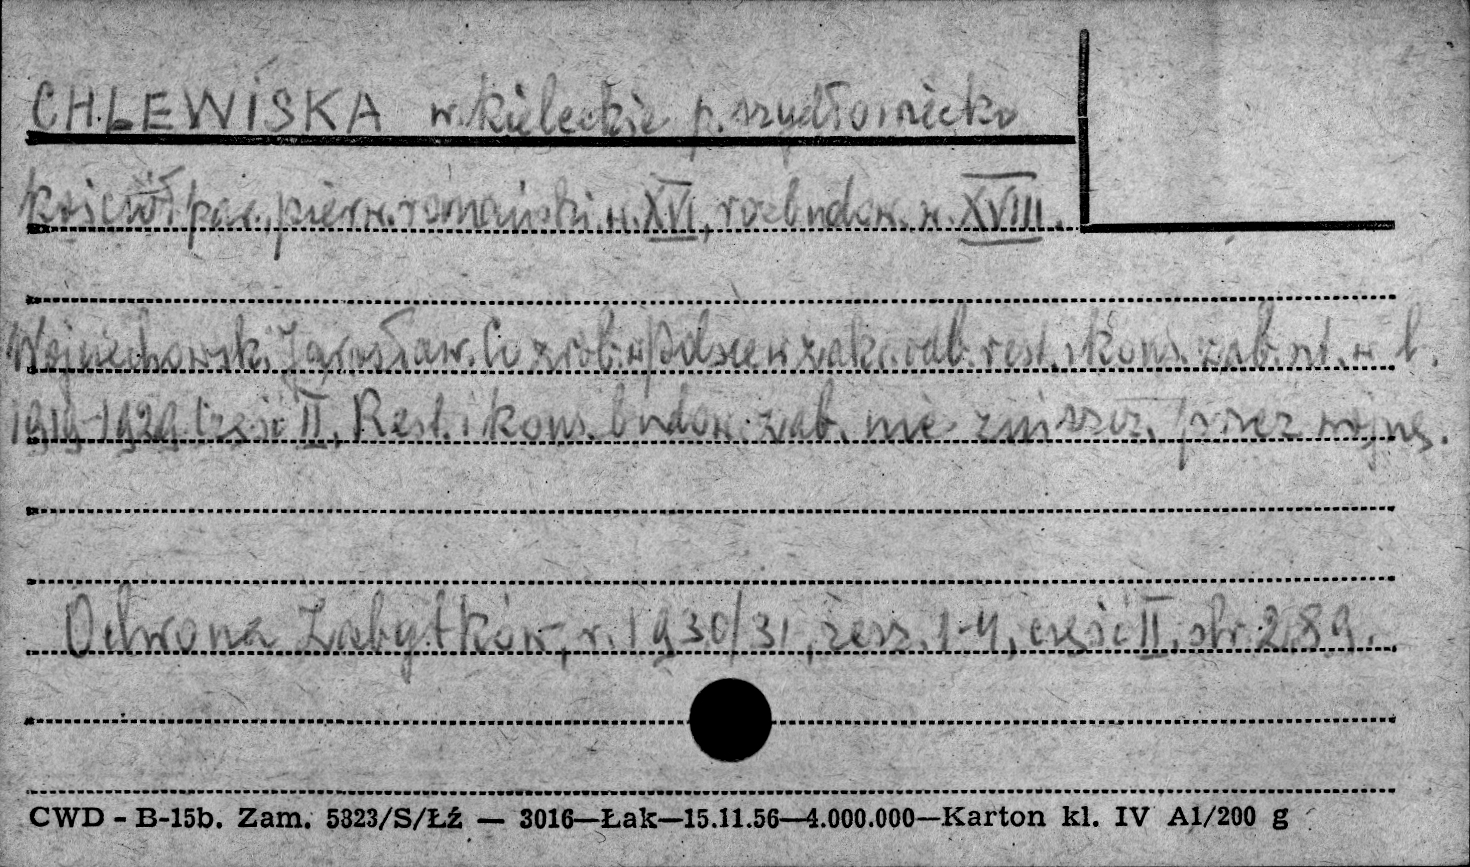 CHLEWISKA w. kieleckie p. szydłowiecko
kościół par. pierw. romański w. XVI, rozbudow. w. XVIII.
Wojciechowski Jarosław. Co zrob. w Polsce w zakr. odb. rest. i kons. zab. szt. w l.
1919-1929. Część II, Rest. i kons. budow. zab. nie zniszcz. przez wojnę.
Ochrona Zabytków, r. 1930/31, zesz. 1-4, część II. str. 289.
CWD - B-15b. Zam. 5323/S/Łź — 3016—Łak—15.11.56—4.000.000—Karton kl. IV A1/200 g